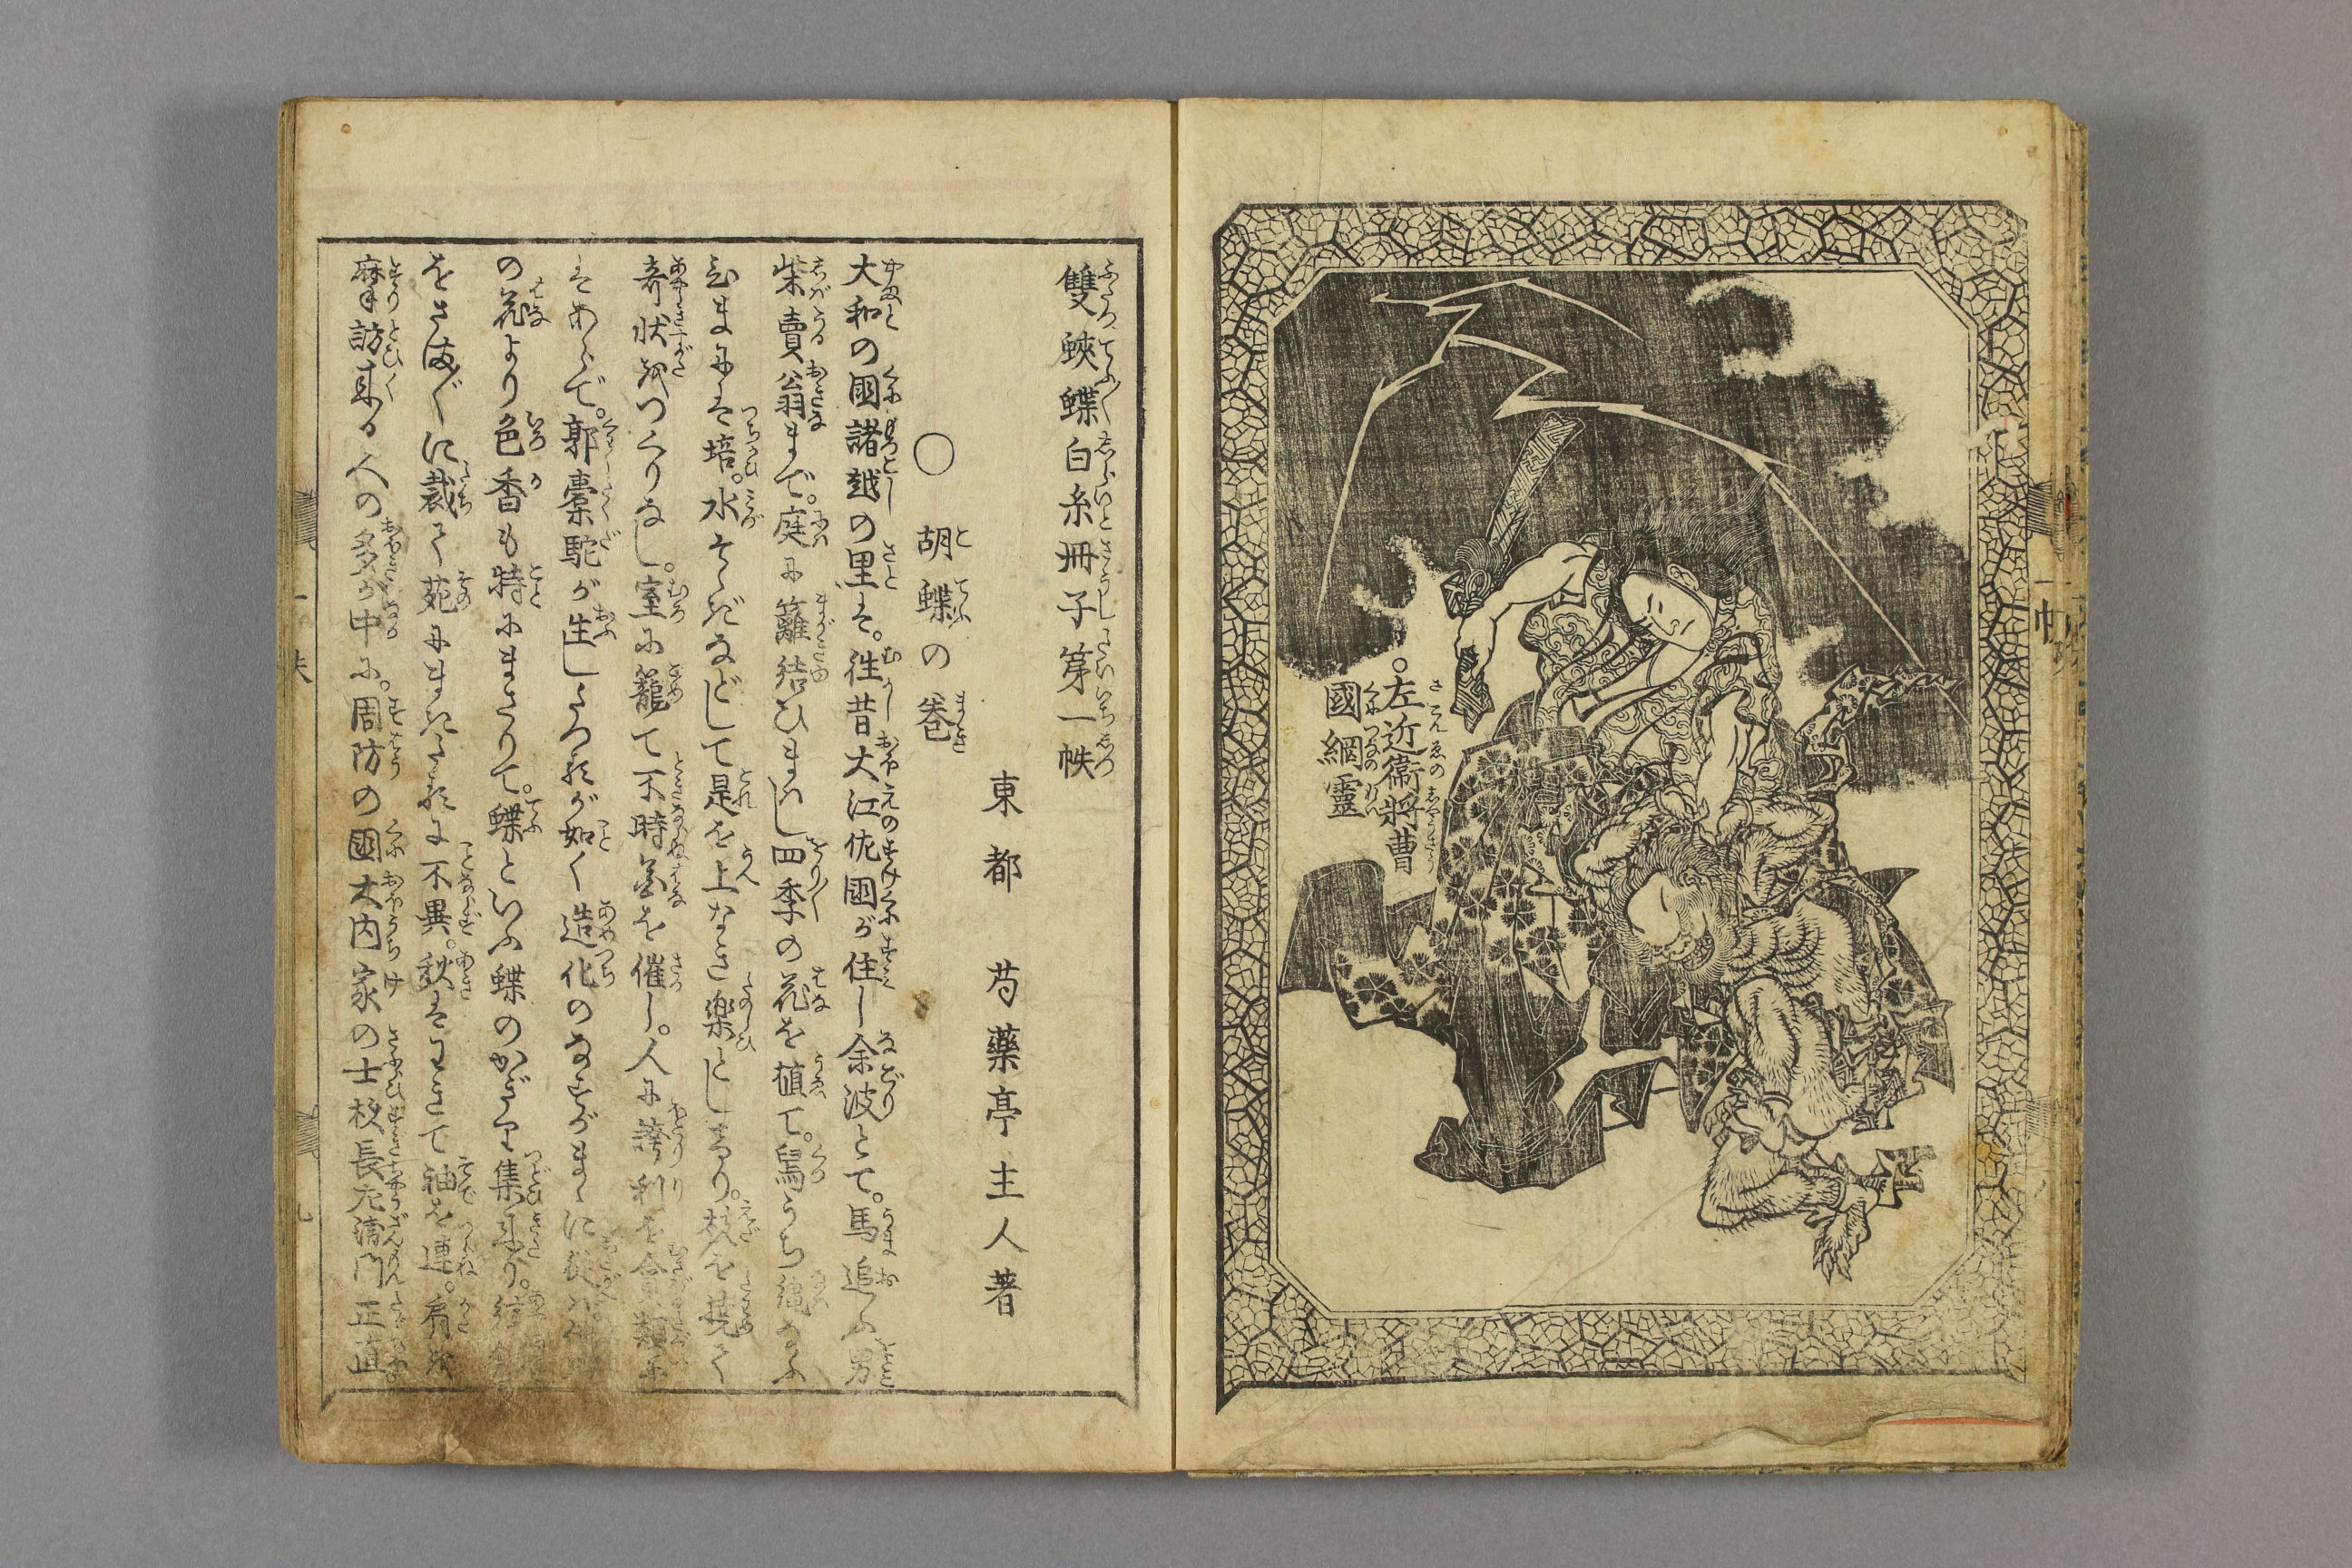 左近衛将曹
國綱靈
雙蛺蝶白糸冊子第一帙
東都　芍藥亭主人著
○胡蝶の巻
大和の國諸越の里に。徃昔大江佐國が住し余波とて。馬追ふ男
柴賣翁まで。庭に籬結ひまはし四季の花を植て。舄うち縄なふ
ひまには培。水そゝぎなどして是を上なき楽としけり。枝を撓て
奇状をつくりなし。室に籠て不時の花を催し。人に誇利を貪類に
はあらで。郭橐駝が生したつるが如く造化のなすがまゝに従
の花より色香も特にまさりて。蝶といふ蝶のかぎり集来り。
をさま〴〵に裁て苑にまきたるに不異。秋はわきて袖を連。肩を
摩訪来る人の多が中に。周防の國大内家の士校長左衛門正直